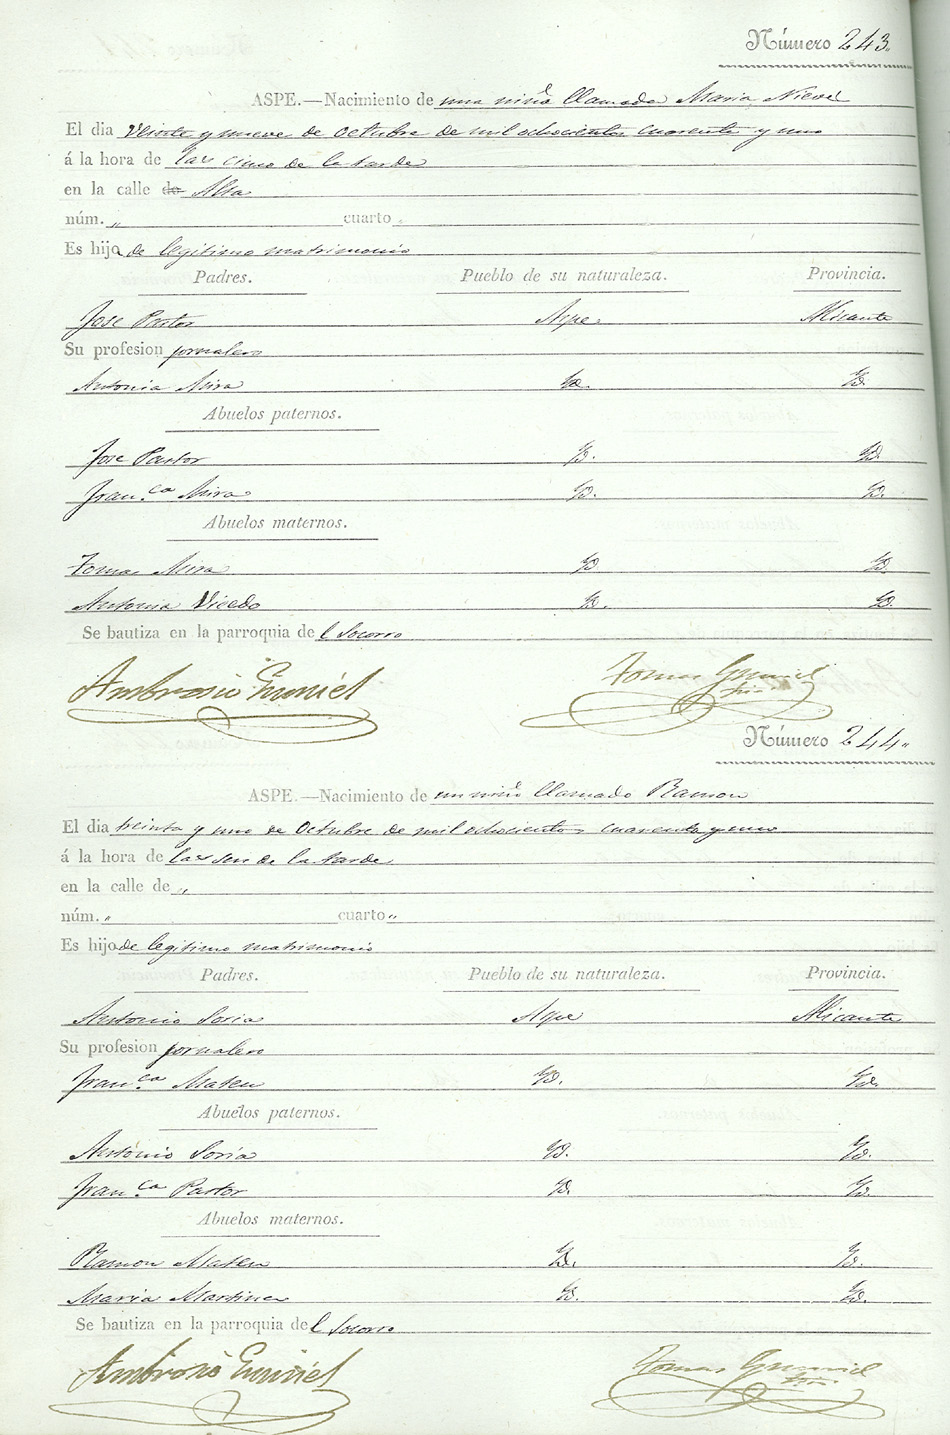 Número 243.
ASPE.—Nacimiento de una niña llamada Maria Nieves
El dia veinte y nueve de Octubre de mil ochocientos cuarenta y uno
á la hora de las cinco de la tarde
en la calle de Alta
núm. „ cuarto „
Es hija de legitimo matrimonio
Padres. Pueblo de su naturaleza. Provincia.
Jose Pastor Aspe Alicante
Su profesion jornalero
Antonia Mira Yd. Yd.
Abuelos paternos.
Jose Pastor Yd. Yd.
Fran.ca Mira Yd. Yd.
Abuelos maternos.
Tomas Mira Yd Yd.
Antonia Vicedo Yd. Yd.
Se bautiza en la parroquia del Socorro
Ambrosio
Tomas
Número 244.
ASPE.—Nacimiento de un niño llamado Ramon
El dia treinta y uno de Octubre de mil ochocientos cuarenta y uno
á la hora de las seis de la tarde
en la calle de „
núm. „ cuarto „
Es hijo de legitimo matrimonio
Padres. Pueblo de su naturaleza. Provincia.
Antonio Soria Aspe Alicante
Su profesion jornalero
Fran.ca Yd. Yd.
Abuelos paternos.
Antonio Soria Yd. Yd.
Fran.ca Pastor Yd. Yd.
Abuelos maternos.
Ramon Yd. Yd.
Maria Martinez Yd. Yd.
Se bautiza en la parroquia del Socorro
Ambrosio
Tomas